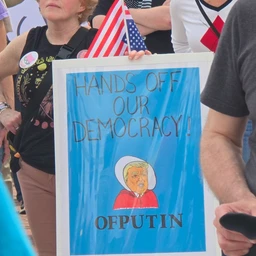 HANDS OFF
OUR
DEMOCRACY!
OFPUTIN